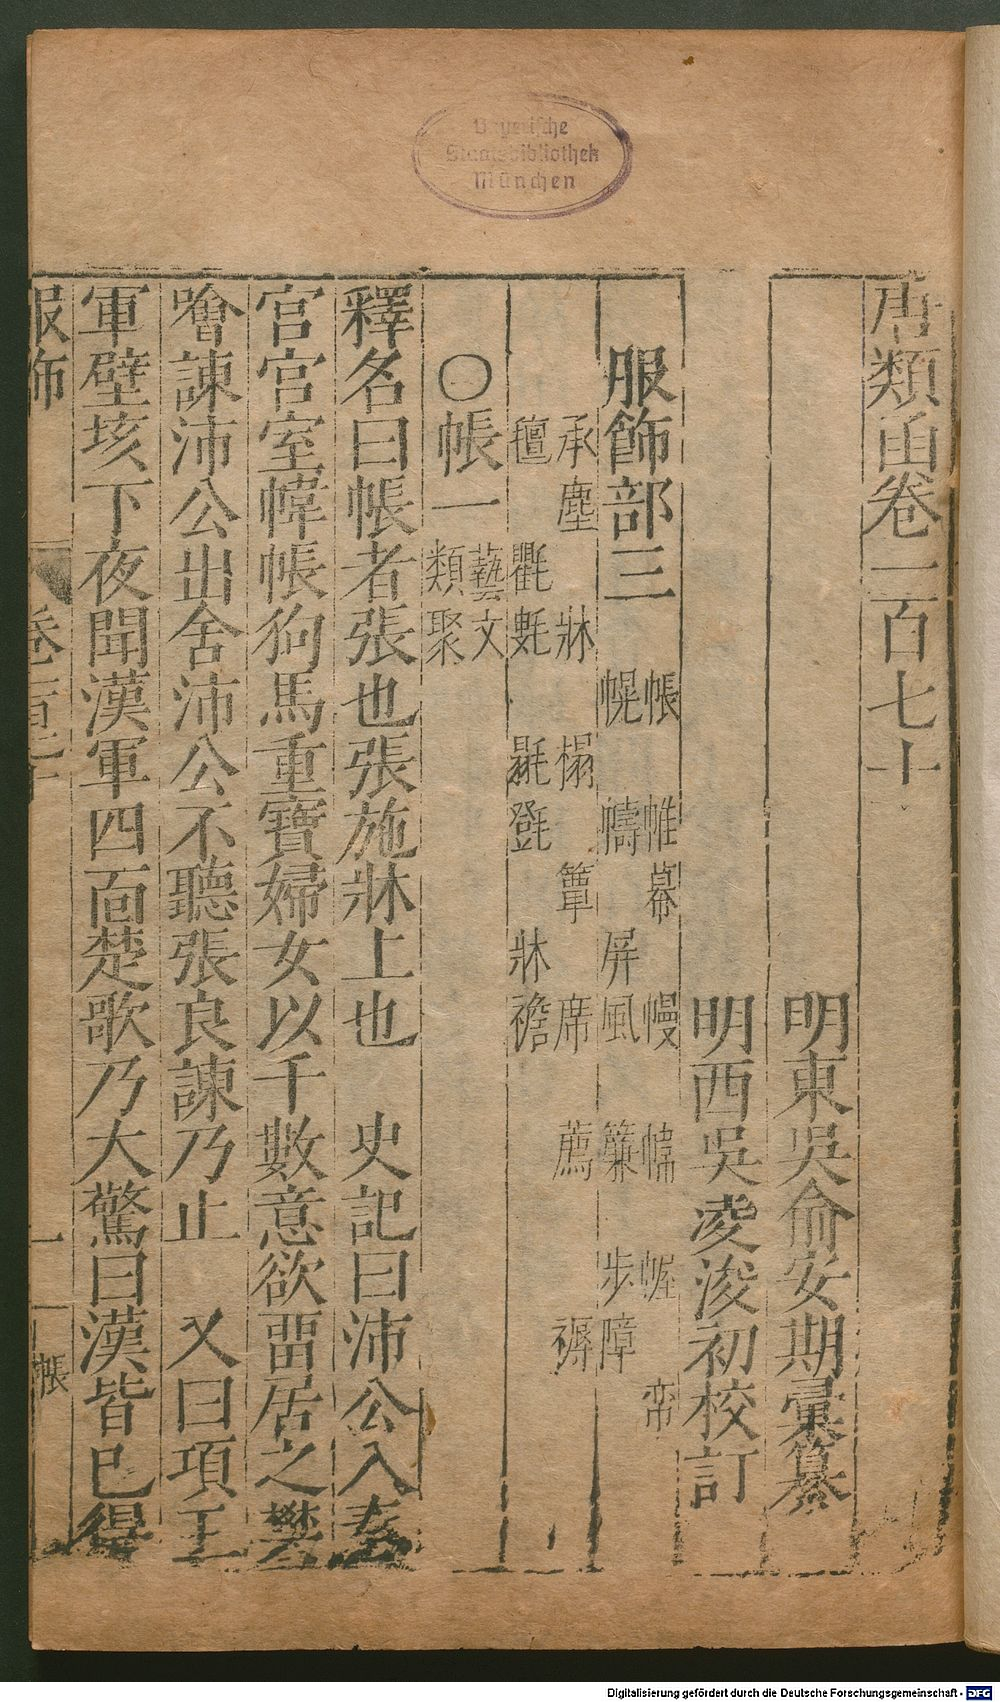 Bayerische
Staatsbibliothek
München
唐類函卷一百七十
明東吳俞安期彙纂
明西吳凌浚初校訂
服飾部三
帳 帷幕 幔 幬 幄 帟
幌 幬 屏風 簾 步障
承塵 牀 榻 簟 席 薦 褥
氊 氍毹 毾㲪 牀襜
○帳一 藝文類聚
釋名曰帳者張也張施牀上也 史記曰沛公入秦
宮宮室幃帳狗馬重寶婦女以千數意欲畱居之樊
噲諫沛公出舍沛公不聽張良諫乃止 又曰項王
軍壁垓下夜聞漢軍四面楚歌乃大驚曰漢皆已得
服飾 卷一百七十 一 帳
Digitalisierung gefördert durch die Deutsche Forschungsgemeinschaft - DFG